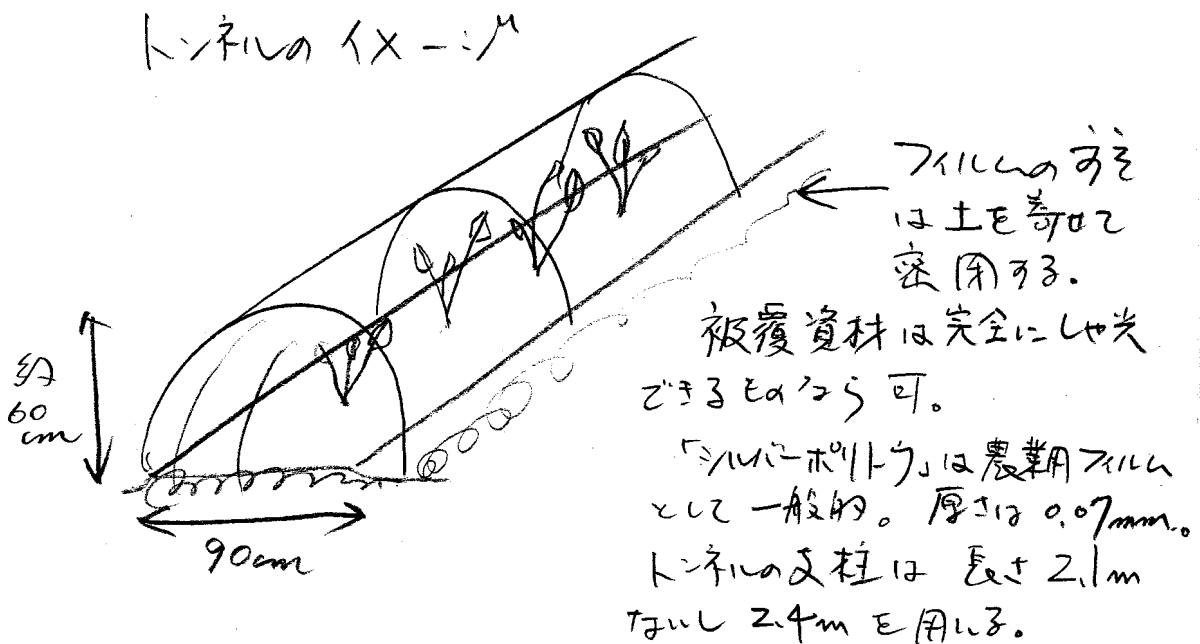 トンネルのイメージ
フィルムのすそ
は土を寄せて
密閉する。
約
60
cm
被覆資材は完全にしゃ光
できるものなら可。
「シルバーポリトウ」は農業用フィルム
として一般的。厚さは0.07mm。
90cm
トンネルの支柱は長さ2.1m
ないし2.4mを用いる。